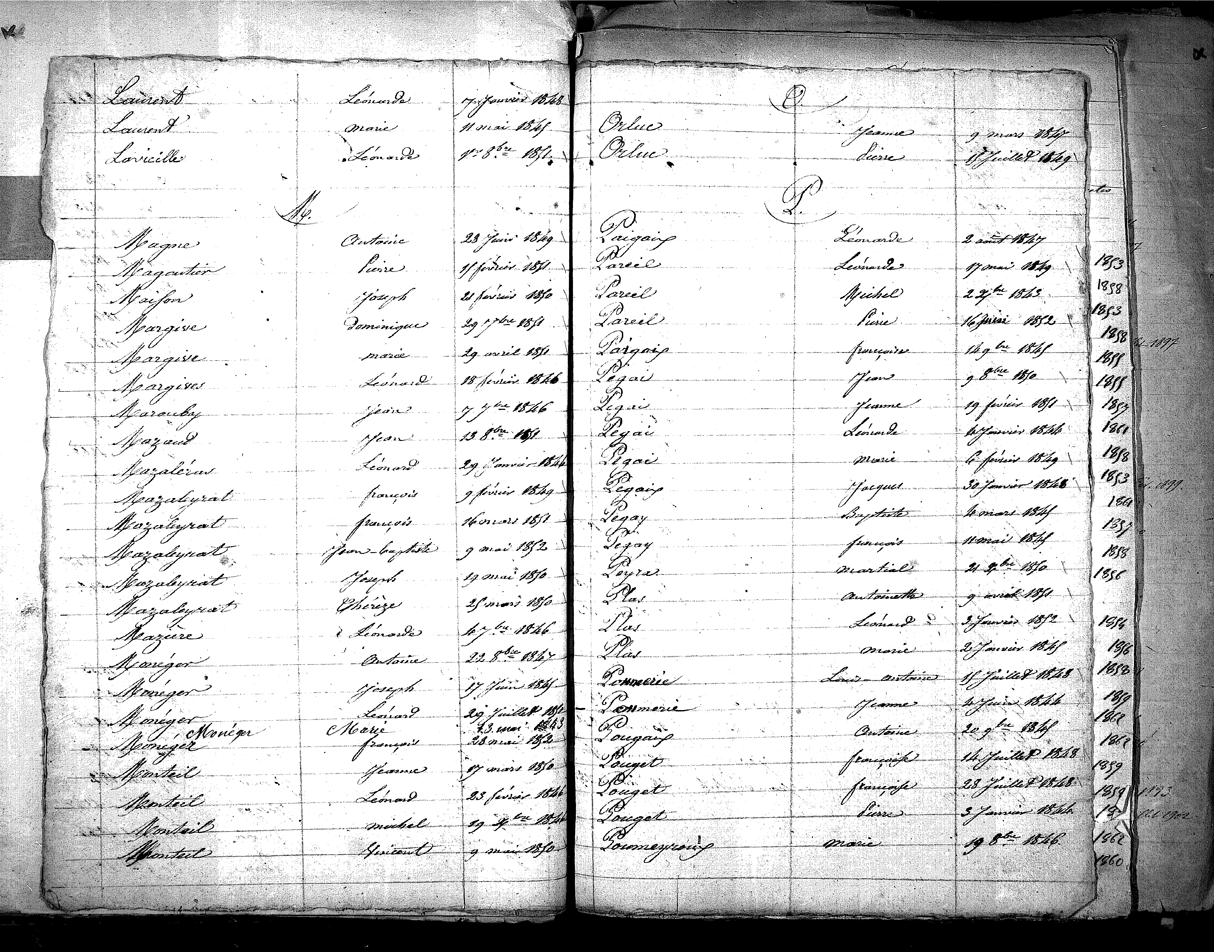 Laurent Léonarde 7 Janvier 1848
Laurent marie 11 mai 1845
Lavieille Léonarde 1er 8bre 1851
M.
Magne Antoine 23 Juin 1849
Magoutier Pierre 25 février 1851
Maison Joseph 21 février 1850
Margive Dominique 29 7bre 1851
Margive marie 29 avril 1851
Margives Léonard 18 février 1846
Marouby Jean 7 7bre 1846
Mazaud Jean 13 8bre 1851
Mazaléras Léonard 29 Janvier 1846
Mazaleyrat françois 9 février 1849
Mazaleyrat françois 16 mars 1851
Mazaleyrat Jean-baptiste 9 mai 1852
Mazaleyrat Joseph 19 mai 1850
Mazaleyrat Thérèze 25 mars 1850
Mazière Léonarde 4 7bre 1846
Monéger Antoine 22 8bre 1847
Monéger Joseph 17 Juin 1845
Monéger Léonard 29 Juillet
Monéger Marie 23 mai 1843
Monéger françois 28 mai 1852
Monteil Jeanne 17 mars 1850
Monteil Léonard 23 février 1846
Monteil michel 19
Monteil Vincent 9 mai 1850
O.
Orluc Jeanne 9 mars 1847
Orluc Pierre 15 Juillet 1849
P.
Paigaix Léonarde 2 août 1847
Pareil Léonarde 17 mai 1849
Pareil Michel 2 1843
Pareil Pierre 16 1852
Pargaix françoise 14 9bre 1845
Pégai Jean 9 8bre 1850
Pegai Jeanne 19 février 1851
Pegai Léonarde 6 Janvier 1844
Pégai marie 6 février 1849
Pegaix Jacques 30 Janvier 1848
Pegay Baptiste 4 mars 1845
Pegay françois 11 mai 1845
Peyra martial 21 1850
Plas Antoinette 9 avril 1851
Plas Léonard 3 Janvier 1852
Plas marie 2 Janvier 1845
Pommerie Louis-antoine 15 Juillet 1848
Pommerie Jeanne 4 Juin 1844
Pougaix Antoine 20 9bre 1845
Pouget françoise 14 Juillet 1848
Pouget françoise 28 Juillet 1848
Pouget Pierre 3 Janvier 1844
Poumeyroux marie 19 8bre 1846
1853
1858
1853
1858
1855
1855
1858
1853
1858
1856
1858
1859
1859
1862
1860